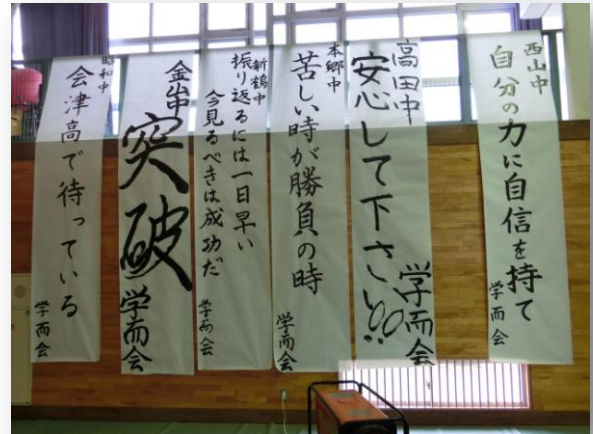 西山中
自分の力に自信を持て
学而会
高田中
安心して下さい!!
学而会
本郷中
苦しい時が勝負の時
学而会
新鶴中
振り返るには一日早い
今見るべきは成功だ
学而会
金山中
突破
学而会
昭和中
会津高で待っている
学而会